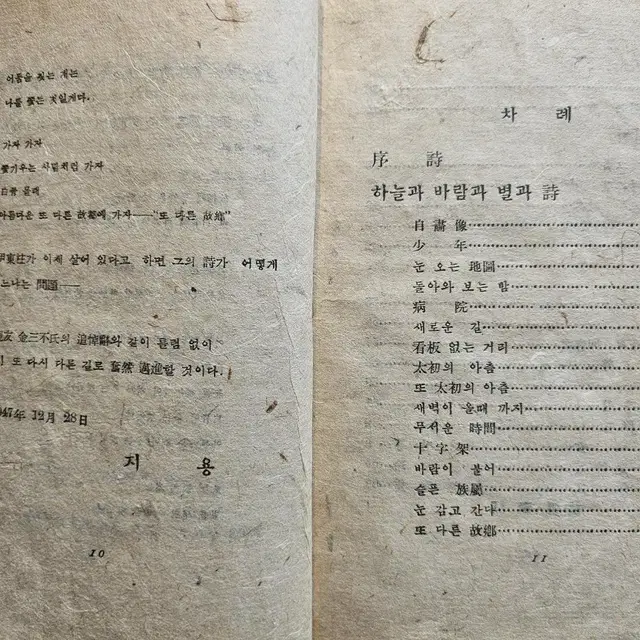 어둠을 짖는 개는
나를 쫓는 것일게다.
가자 가자
쫓기우는 사람처럼 가자
白骨 몰래
아름다운 또 다른 故鄕에 가자——"또 다른 故鄕"
尹東柱가 이제 살어 있다고 하면 그의 詩가 어떻게
느냐는 問題——
金三不氏의 追悼辭와 같이 틀림 없이
또 다시 다른 길로 奮然 邁進할 것이다.
947年 12月 28日
지 용
10
차 례
序 詩
하늘과 바람과 별과 詩
自 畵 像
少 年
눈 오는 地圖
돌아와 보는 밤
病 院
새로운 길
看板 없는 거리
太初의 아츰
또 太初의 아츰
새벽이 올때 까지
무서운 時間
十 字 架
바람이 불어
슬픈 族屬
눈 감고 간다
또 다른 故鄕
11